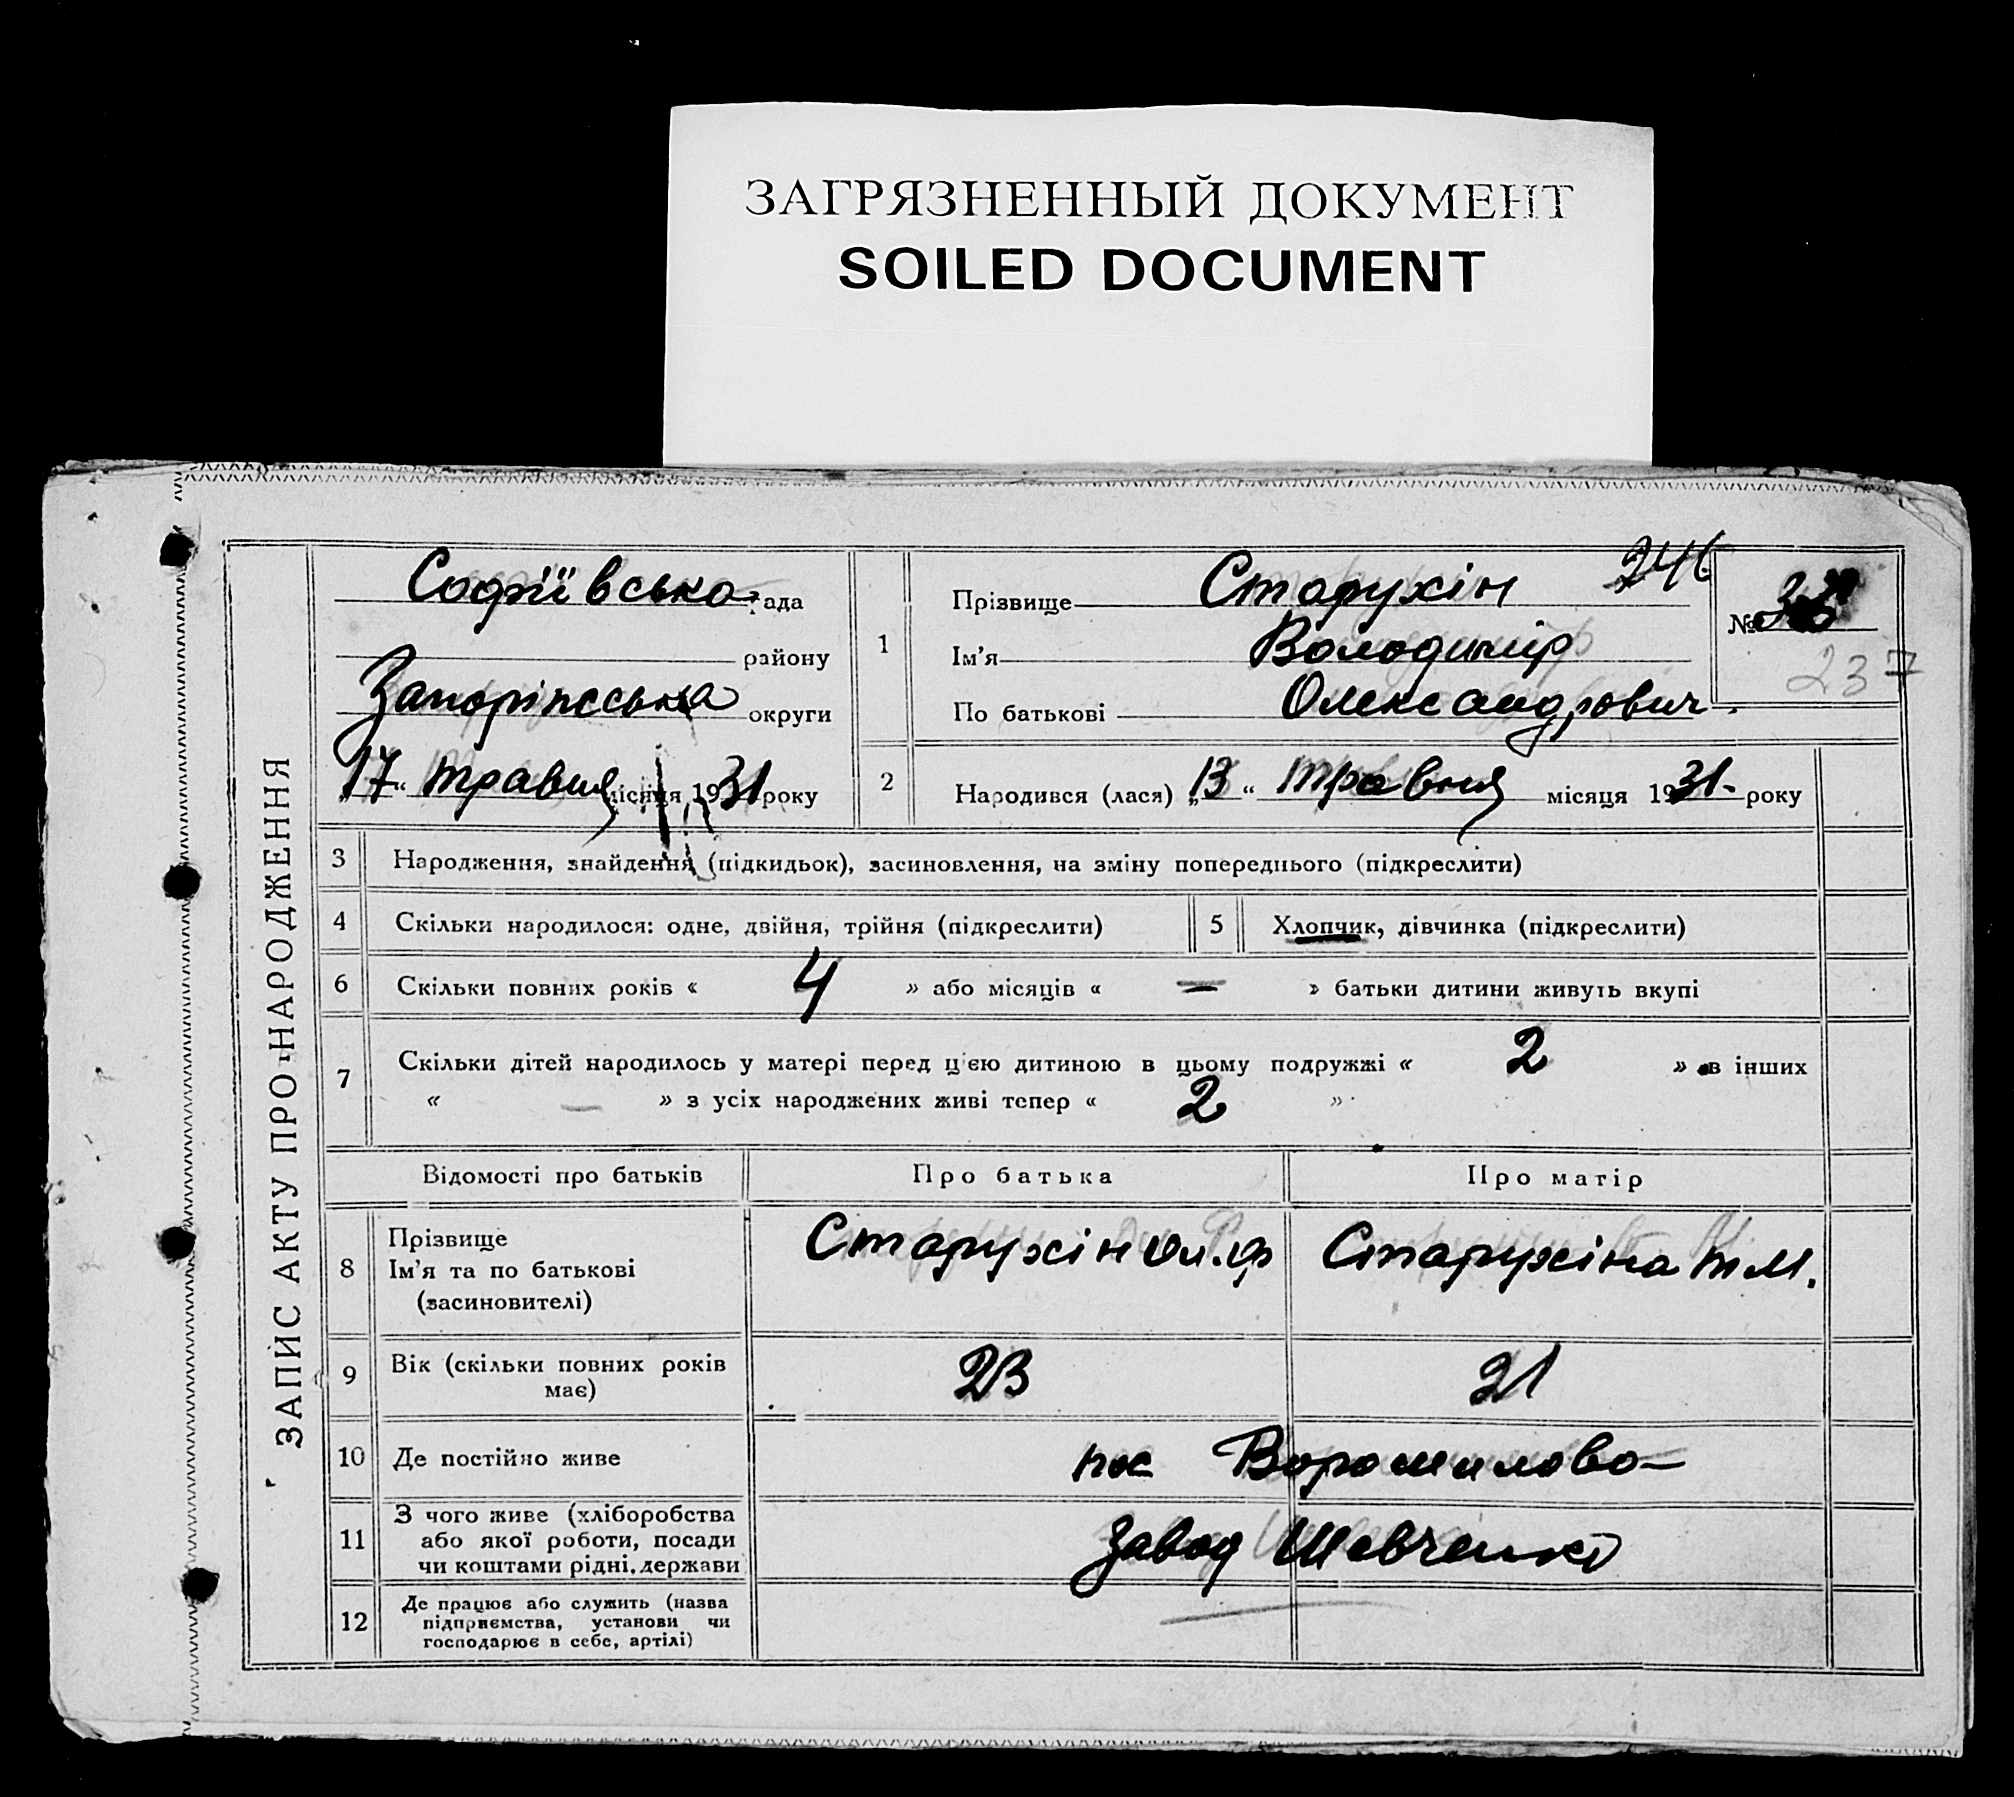 ЗАГРЯЗНЕННЫЙ ДОКУМЕНТ
SOILED DOCUMENT
ЗАПИС АКТУ ПРО НАРОДЖЕННЯ
Софіївська рада
району
Запоріжська округи
„17“ травня місяця 1931 року
1
Прізвище Старухін
246
Ім'я Володимір
По батькові Олександрович
№
237
2 Народився (лася) „13“ травня місяця 1931. року
3 Народження, знайдення (підкидьок), засиновлення, на зміну попереднього (підкреслити)
4 Скільки народилося: одне, двійня, трійня (підкреслити)
5 Хлопчик, дівчинка (підкреслити)
6 Скільки повних років « 4 » або місяців « — » батьки дитини живуть вкупі
7 Скільки дітей народилось у матері перед ц'єю дитиною в цьому подружжі « 2 » в інших
« — » з усіх народжених живі тепер « 2 »
Відомості про батьків Про батька Про матір
8 Прізвище
Ім'я та по батькові
(засиновителі)
Старухін Ол. Ф Старухіна т М.
9 Вік (скільки повних років
має)
23 21
10 Де постійно живе пос Ворошилово
11 З чого живе (хліборобства
або якої роботи, посади
чи коштами рідні, держави
завод Шевченко
12 Де працює або служить (назва
підприємства, установи чи
господарює в себе, артілі)